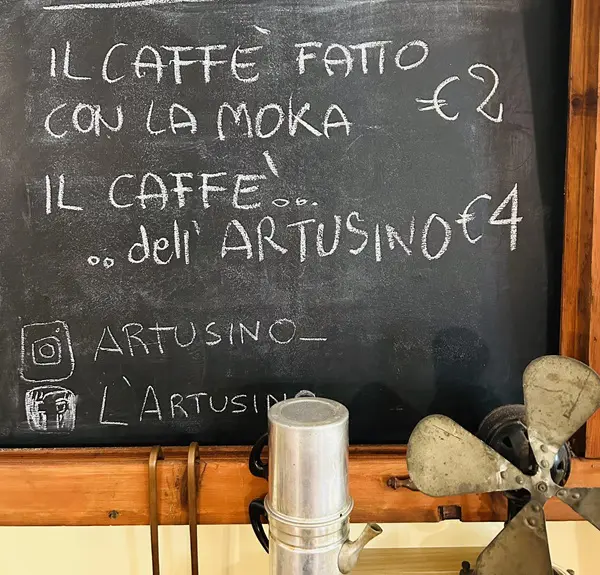 IL CAFFÈ FATTO
CON LA MOKA €2
IL CAFFÈ...
..dell' ARTUSINO €4
ARTUSINO_
L'ARTUSINO